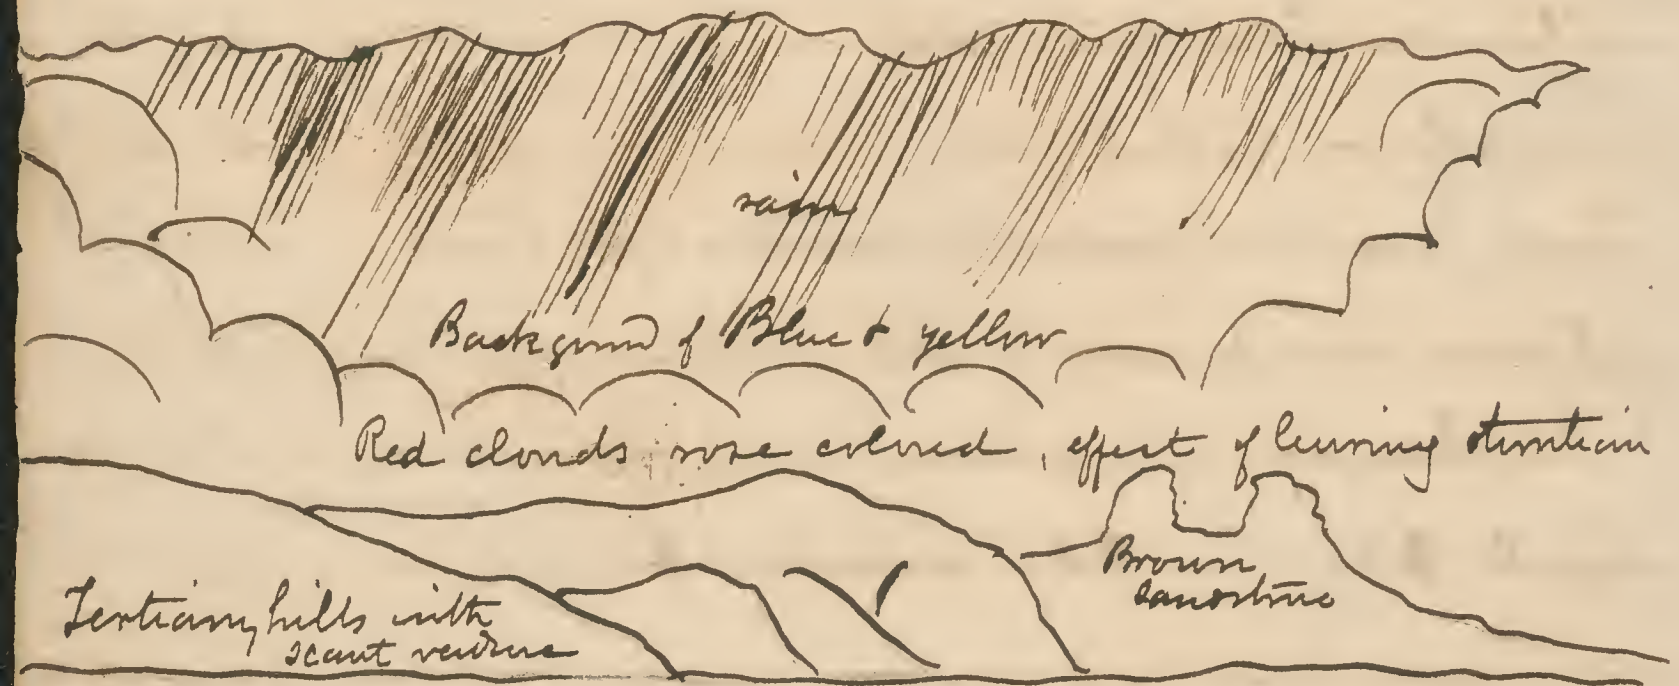 rain
Background of Blue & yellow
Red clouds rose colored, effect of burning strontium
Brown
sandstone
Tertiary hills with
scant verdure